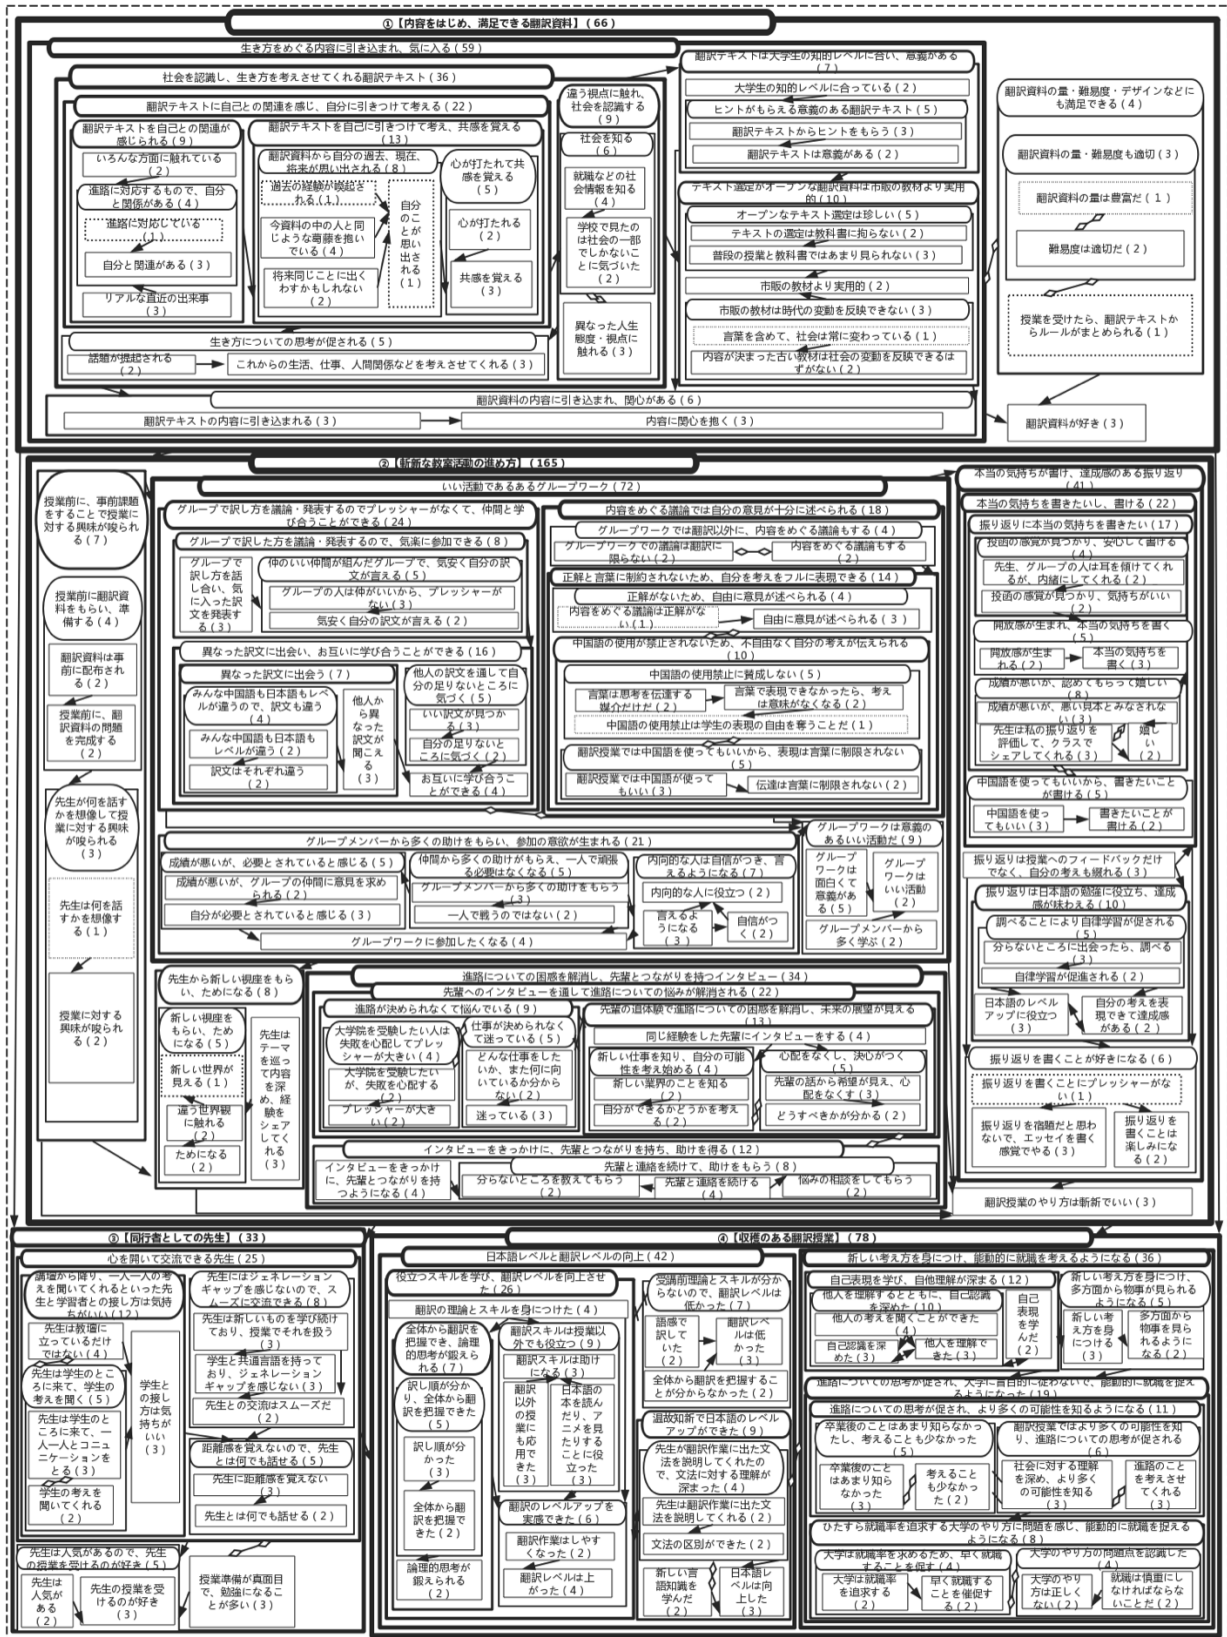 ①【内容をはじめ、満足できる翻訳資料】(66)
生き方をめぐる内容に引き込まれ、気に入る(59)
社会を認識し、生き方を考えさせてくれる翻訳テキスト(36)
翻訳テキストに自己との関連を感じ、自分に引きつけて考える(22)
翻訳テキストを自己との関連が
感じられる(9)
いろんな方面に触れている
(2)
進路に対応するもので、自分
と関係がある(4)
進路に対応している
(1)
自分と関連がある(3)
リアルな直近の出来事
(3)
翻訳テキストを自己に引きつけて考え、共感を覚える
(13)
翻訳資料から自分の過去、現在、
将来が思い出される(8)
過去の経験が喚起さ
れる(1)
今資料の中の人と同
じような葛藤を抱い
ている(4)
将来同じことに出く
わすかもしれない
(2)
自分
のこ
とが
思い
出さ
れる
(1)
心が打たれて共
感を覚える
(5)
心が打たれる
(2)
共感を覚える
(3)
生き方についての思考が促される(5)
話題が提起される
(2)
これからの生活、仕事、人間関係などを考えさせてくれる(3)
違う視点に触れ、
社会を認識する
(9)
社会を知る
(6)
就職などの社
会情報を知る
(4)
学校で見たの
は社会の一部
でしかないこ
とに気づいた
(2)
異なった人生
態度・視点に
触れる(3)
翻訳資料の内容に引き込まれ、関心がある(6)
翻訳テキストの内容に引き込まれる(3)
内容に関心を抱く(3)
翻訳テキストは大学生の知的レベルに合い、意義がある
(7)
大学生の知的レベルに合っている(2)
ヒントがもらえる意義のある翻訳テキスト(5)
翻訳テキストからヒントをもらう(3)
翻訳テキストは意義がある(2)
テキスト選定がオープンな翻訳資料は市販の教材より実用
的(10)
オープンなテキスト選定は珍しい(5)
テキストの選定は教科書に拘らない(2)
普段の授業と教科書ではあまり見られない(3)
市販の教材より実用的(2)
市販の教材は時代の変動を反映できない(3)
言葉を含めて、社会は常に変わっている(1)
内容が決まった古い教材は社会の変動を反映できるは
ずがない(2)
翻訳資料の量・難易度・デザインなどに
も満足できる(4)
翻訳資料の量・難易度も適切(3)
翻訳資料の量は豊富だ(1)
難易度は適切だ(2)
授業を受けたら、翻訳テキストか
らルールがまとめられる(1)
翻訳資料が好き(3)
②【斬新な教室活動の進め方】(165)
授業前に、事前課題
をすることで授業に
対する興味が唆られ
る(7)
授業前に翻訳資
料をもらい、準
備する(4)
翻訳資料は事
前に配布され
る(2)
授業前に、翻
訳資料の問題
を完成する
(2)
先生が何を話す
かを想像して授
業に対する興味
が唆られる
(3)
先生は何を話
すかを想像す
る(1)
授業に対する
興味が唆られ
る(2)
いい活動であるあるグループワーク(72)
グループで訳し方を議論・発表するのでプレッシャーがなくて、仲間と学
び合うことができる(24)
グループで訳した方を議論・発表するので、気楽に参加できる(8)
グループで
訳し方を話
し合い、気
に入った訳
文を発表す
る(3)
仲のいい仲間が組んだグループで、気安く自分の訳
文が言える(5)
グループの人は仲がいいから、プレッシャーが
ない(3)
気安く自分の訳文が言える(2)
異なった訳文に出会い、お互いに学び合うことができる(16)
異なった訳文に出会う(7)
みんな中国語も日本語もレベ
ルが違うので、訳文も違う
(4)
みんな中国語も日本語も
レベルが違う(2)
訳文はそれぞれ違う
(2)
他人か
ら異
なった
訳文が
聞こえ
る
(3)
他人の訳文を通して自
分の足りないところに
気づく(5)
いい訳文が見つか
る(3)
自分の足りないと
ころに気づく(2)
お互いに学び合うこ
とができる(4)
内容をめぐる議論では自分の意見が十分に述べられる(18)
グループワークでは翻訳以外に、内容をめぐる議論もする(4)
グループワークでの議論は翻訳に
限らない(2)
内容をめぐる議論もする
(2)
正解と言葉に制約されないため、自分を考えをフルに表現できる(14)
正解がないため、自由に意見が述べられる(4)
内容をめぐる議論は正解がな
い(1)
自由に意見が述べられる(3)
中国語の使用が禁止されないため、不自由なく自分の考えが伝えられる
(10)
中国語の使用禁止に賛成しない(5)
言葉は思考を伝達する
媒介だけだ(2)
言葉で表現できなかったら、考え
は意味がなくなる(2)
中国語の使用禁止は学生の表現の自由を奪うことだ(1)
翻訳授業では中国語を使ってもいいから、表現は言葉に制限されない
(5)
翻訳授業では中国語が使って
もいい(3)
伝達は言葉に制限されない(2)
グループメンバーから多くの助けをもらい、参加の意欲が生まれる(21)
成績が悪いが、必要とされていると感じる(5)
成績が悪いが、グループの仲間に意見を求め
られる(2)
自分が必要とされていると感じる(3)
仲間から多くの助けがもらえ、一人で頑張
る必要はなくなる(5)
グループメンバーから多くの助けをもらう
(3)
一人で戦うのではない(2)
内向的な人は自信がつき、言
えるようになる(7)
内向的な人に役立つ(2)
言えるよ
うになる
(3)
自信がつ
く(2)
グループワークに参加したくなる(4)
グループワークは意義の
あるいい活動だ(9)
グループ
ワークは
面白くて
意義があ
る(5)
グループ
ワークは
いい活動
(2)
グループメンバーから
多く学ぶ(2)
先生から新しい視座をもら
い、ためになる(8)
新しい視座を
もらい、ため
になる(5)
新しい世界が
見える(1)
違う世界観
に触れる
(2)
ためになる
(2)
先生は
テーマ
を巡っ
て内容
を深
め、経
験を
シェア
してく
れる
(3)
進路についての困惑を解消し、先輩とつながりを持つインタビュー(34)
先輩へのインタビューを通して進路についての悩みが解消される(22)
進路が決められなくて悩んでいる(9)
大学院を受験したい人は
失敗を心配してプレッ
シャーが大きい(4)
大学院を受験したい
が、失敗を心配する
(2)
プレッシャーが大き
い(2)
仕事が決められなく
て迷っている(5)
どんな仕事をした
いか、また何に向
いているか分から
ない(2)
迷っている(3)
先輩の追体験で進路についての困惑を解消し、未来の展望が見える
(13)
同じ経験をした先輩にインタビューをする(4)
新しい仕事を知り、自分の可能
性を考え始める(4)
新しい業界のことを知る
(2)
自分ができるかどうかを考え
る(2)
心配をなくし、決心がつく
(5)
先輩の話から希望が見え、心
配をなくす(3)
どうすべきかが分かる(2)
インタビューをきっかけに、先輩とつながりを持ち、助けを得る(12)
インタビューをきっかけ
に、先輩とつながりを持
つようになる(4)
先輩と連絡を続けて、助けをもらう(8)
分らないところを教えてもらう
(2)
先輩と連絡を続ける
(4)
悩みの相談をしてもらう
(2)
本当の気持ちが書け、達成感のある振り返り
(41)
本当の気持ちを書きたいし、書ける(22)
振り返りに本当の気持ちを書きたい(17)
投函の感覚が見つかり、安心して書ける
(4)
先生、グループの人は耳を傾けてくれ
るが、内緒にしてくれる(2)
投函の感覚が見つかり、気持ちがいい
(2)
開放感が生まれ、本当の気持ちを書く
(5)
開放感が生ま
れる(2)
本当の気持ちを
書く(3)
成績が悪いが、認めてもらって嬉しい
(8)
成績が悪いが、悪い見本とみなされな
い(3)
先生は私の振り返りを
評価して、クラスで
シェアしてくれる(3)
嬉し
い
(2)
中国語を使ってもいいから、書きたいこと
が書ける(5)
中国語を使っ
てもいい(3)
書きたいことが
書ける(2)
振り返りは授業へのフィードバックだけ
でなく、自分の考えも綴れる(3)
振り返りは日本語の勉強に役立ち、達成
感が味わえる(10)
調べることにより自律学習が促される
(5)
分らないところに出会ったら、調べる
(3)
自律学習が促進される(2)
日本語のレベル
アップに役立つ
(3)
自分の考えを表
現できて達成感
がある(2)
振り返りを書くことが好きになる(6)
振り返りを書くことにプレッシャーがな
い(1)
振り返りを宿題だと思わ
ないで、エッセイを書く
感覚でやる(3)
振り返りを
書くことは
楽しみにな
る(2)
翻訳授業のやり方は斬新でいい(3)
③【同行者としての先生】(33)
心を開いて交流できる先生(25)
講壇から降り、一人一人の考
えを聞いてくれるといった先
生と学習者との接し方は気持
ちがいい(12)
先生は教壇に
立っているだけ
ではない(4)
先生は学生のとこ
ろに来て、学生の
考えを聞く(5)
先生は学生のと
ころに来て、一
人一人とコニュ
ニケーションを
とる(3)
学生の考えを
聞いてくれる
(2)
学生と
の接し
方は気
持ちが
いい
(3)
先生にはジェネレーション
ギャップを感じないので、ス
ムーズに交流できる(8)
先生は新しいものを学び続け
ており、授業でそれを扱う
(3)
学生と共通言語を持って
おり、ジェネレーション
ギャップを感じない(3)
先生との交流はスムーズだ
(2)
距離感を覚えないので、先生
とは何でも話せる(5)
先生に距離感を覚えない
(3)
先生とは何でも話せる(2)
先生は人気があるので、先生
の授業を受けるのが好き(5)
先生は
人気が
ある
(2)
先生の授業を受
けるのが好き
(3)
授業準備が真面目
で、勉強になるこ
とが多い(3)
④【収穫のある翻訳授業】(78)
日本語レベルと翻訳レベルの向上(42)
役立つスキルを学び、翻訳レベルを向上させ
た(26)
翻訳の理論とスキルを身につけた(4)
全体から翻訳を
把握でき、論理
的思考が鍛えら
れる(7)
訳し順が分か
り、全体から翻
訳を把握できた
(5)
訳し順が分
かった
(3)
全体から翻
訳を把握で
きた(2)
論理的思考が
鍛えられる
(2)
翻訳スキルは授業以
外でも役立つ(9)
翻訳スキルは助け
になる(3)
翻訳
以外
の授
業に
も応
用で
きた
(3)
日本語の
本を読ん
だり、ア
ニメを見
たりする
ことに役
立った
(3)
翻訳のレベルアップを
実感できた(6)
翻訳作業はしやす
くなった(2)
翻訳レベルは上
がった(4)
受講前理論とスキルが分か
らないので、翻訳レベルは
低かった(7)
語感で
訳して
いた
(2)
翻訳レベ
ルは低
かった
(3)
全体から翻訳を把握するこ
とが分からなかった(2)
温故知新で日本語のレベル
アップができた(9)
先生が翻訳作業に出た文
法を説明してくれたの
で、文法に対する理解が
深まった(4)
先生は翻訳作業に出た文
法を説明してくれる(2)
文法の区別ができた(2)
新しい言
語知識を
学んだ
(2)
日本語レ
ベルは向
上した
(3)
新しい考え方を身につけ、能動的に就職を考えるようになる(36)
自己表現を学び、自他理解が深まる(12)
他人を理解するとともに、自己認識
を深めた(10)
他人の考えを聞くことができた
(4)
自己認識を深
めた(3)
他人を理解で
きた(3)
自己
表現
を学
んだ
(2)
新しい考え方を身につけ、
多方面から物事が見られる
ようになる(5)
新しい考
え方を身
につける
(3)
多方面から
物事を見ら
れるように
なる(2)
進路についての思考が促され、大学に盲目的に従わないで、能動的に就職を捉え
るようになった(19)
進路についての思考が促され、より多くの可能性を知るようになる(11)
卒業後のことはあまり知らなかっ
たし、考えることも少なかった
(5)
卒業後のこと
はあまり知ら
なかった
(3)
考えること
も少なかっ
た(2)
翻訳授業ではより多くの可能性を知
り、進路についての思考が促される
(6)
社会に対する理解
を深め、より多く
の可能性を知る
(3)
進路のこと
を考えさせ
てくれる
(3)
ひたすら就職率を追求する大学のやり方に問題を感じ、能動的に就職を捉える
ようになる(8)
大学は就職率を求めるため、早く就職
することを促す(4)
大学は就職率
を追求する
(2)
早く就職する
ことを催促す
る(2)
大学のやり方の問題点を認識した
(4)
大学のやり
方は正しく
ない(2)
就職は慎重にし
なければならな
いことだ(2)